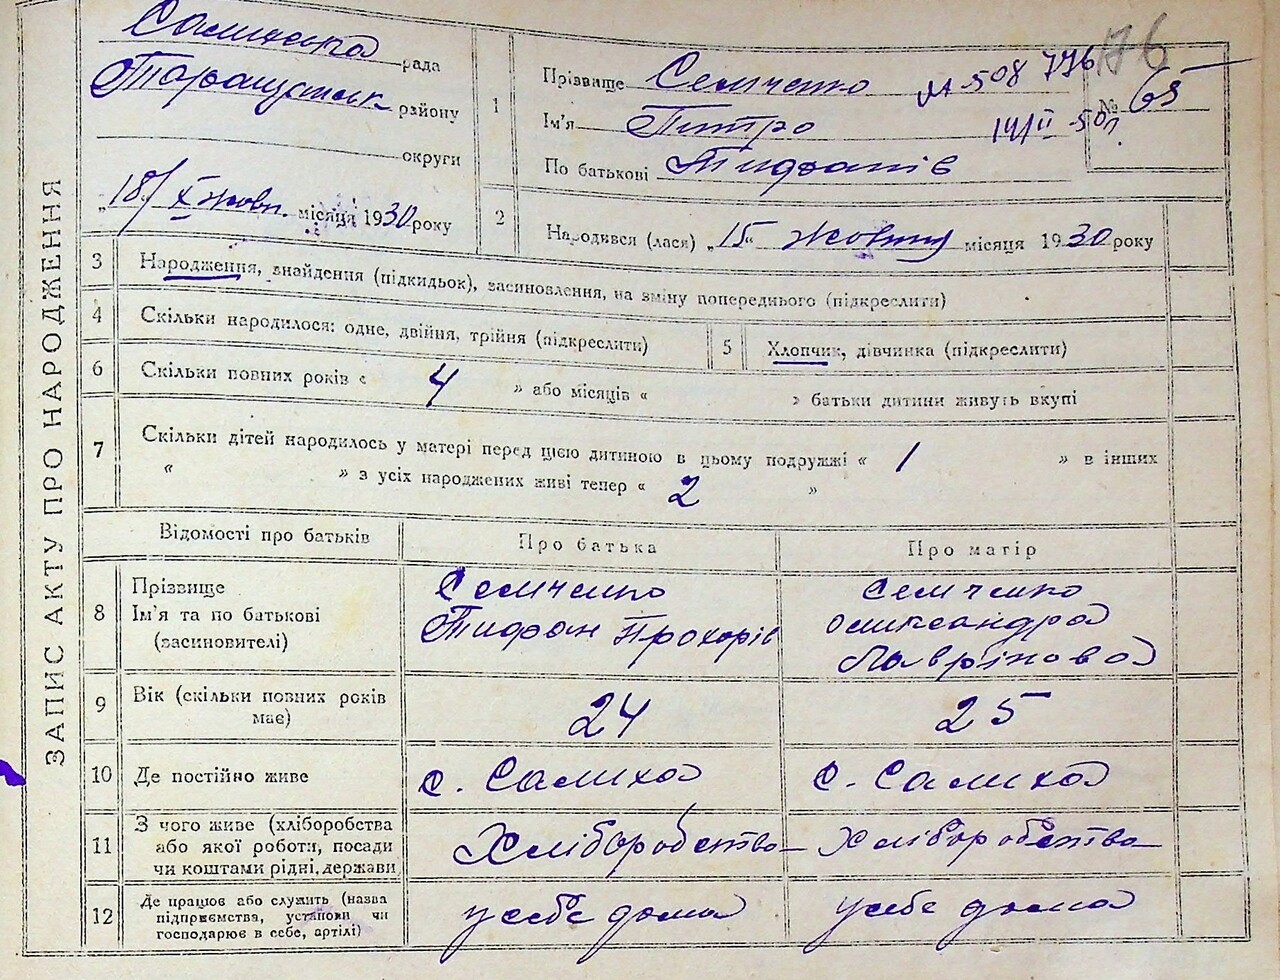 ЗАПИС АКТУ ПРО НАРОДЖЕННЯ
Салихська рада
Таращанськ району
округи
„18/ X жовт. місяця 1930 року
176
1 Прізвище Семченко
Ім'я Питро
По батькові Тифанів
И-508 776
14/II-50 п.
№ 65
2 Народився (лася) „15“ жовтня місяця 1930 року
3 Народження, знайдення (підкидьок), засиновлення, на зміну попереднього (підкреслити)
4 Скільки народилося: одне, двійня, трійня (підкреслити)
5 Хлопчик, дівчинка (підкреслити)
6 Скільки повних років « 4 » або місяців « » батьки дитини живуть вкупі
7 Скільки дітей народилось у матері перед цією дитиною в цьому подружжі « 1 » в інших
« » з усіх народжених живі тепер « 2 »
Відомості про батьків Про батька Про матір
8 Прізвище Семченко Семченко
Ім'я та по батькові Тифан Прохорів Олександра
(засиновителі) Лаврінова
9 Вік (скільки повних років 24 25
має)
10 Де постійно живе с. Салиха с. Салиха
11 З чого живе (хліборобства
або якої роботи, посади Хліборобство Хліборобство
чи коштами рідні, держави
12 Де працює або служить (назва
підприємства, установи чи у себе дома у себе дома
господарює в себе, артілі)